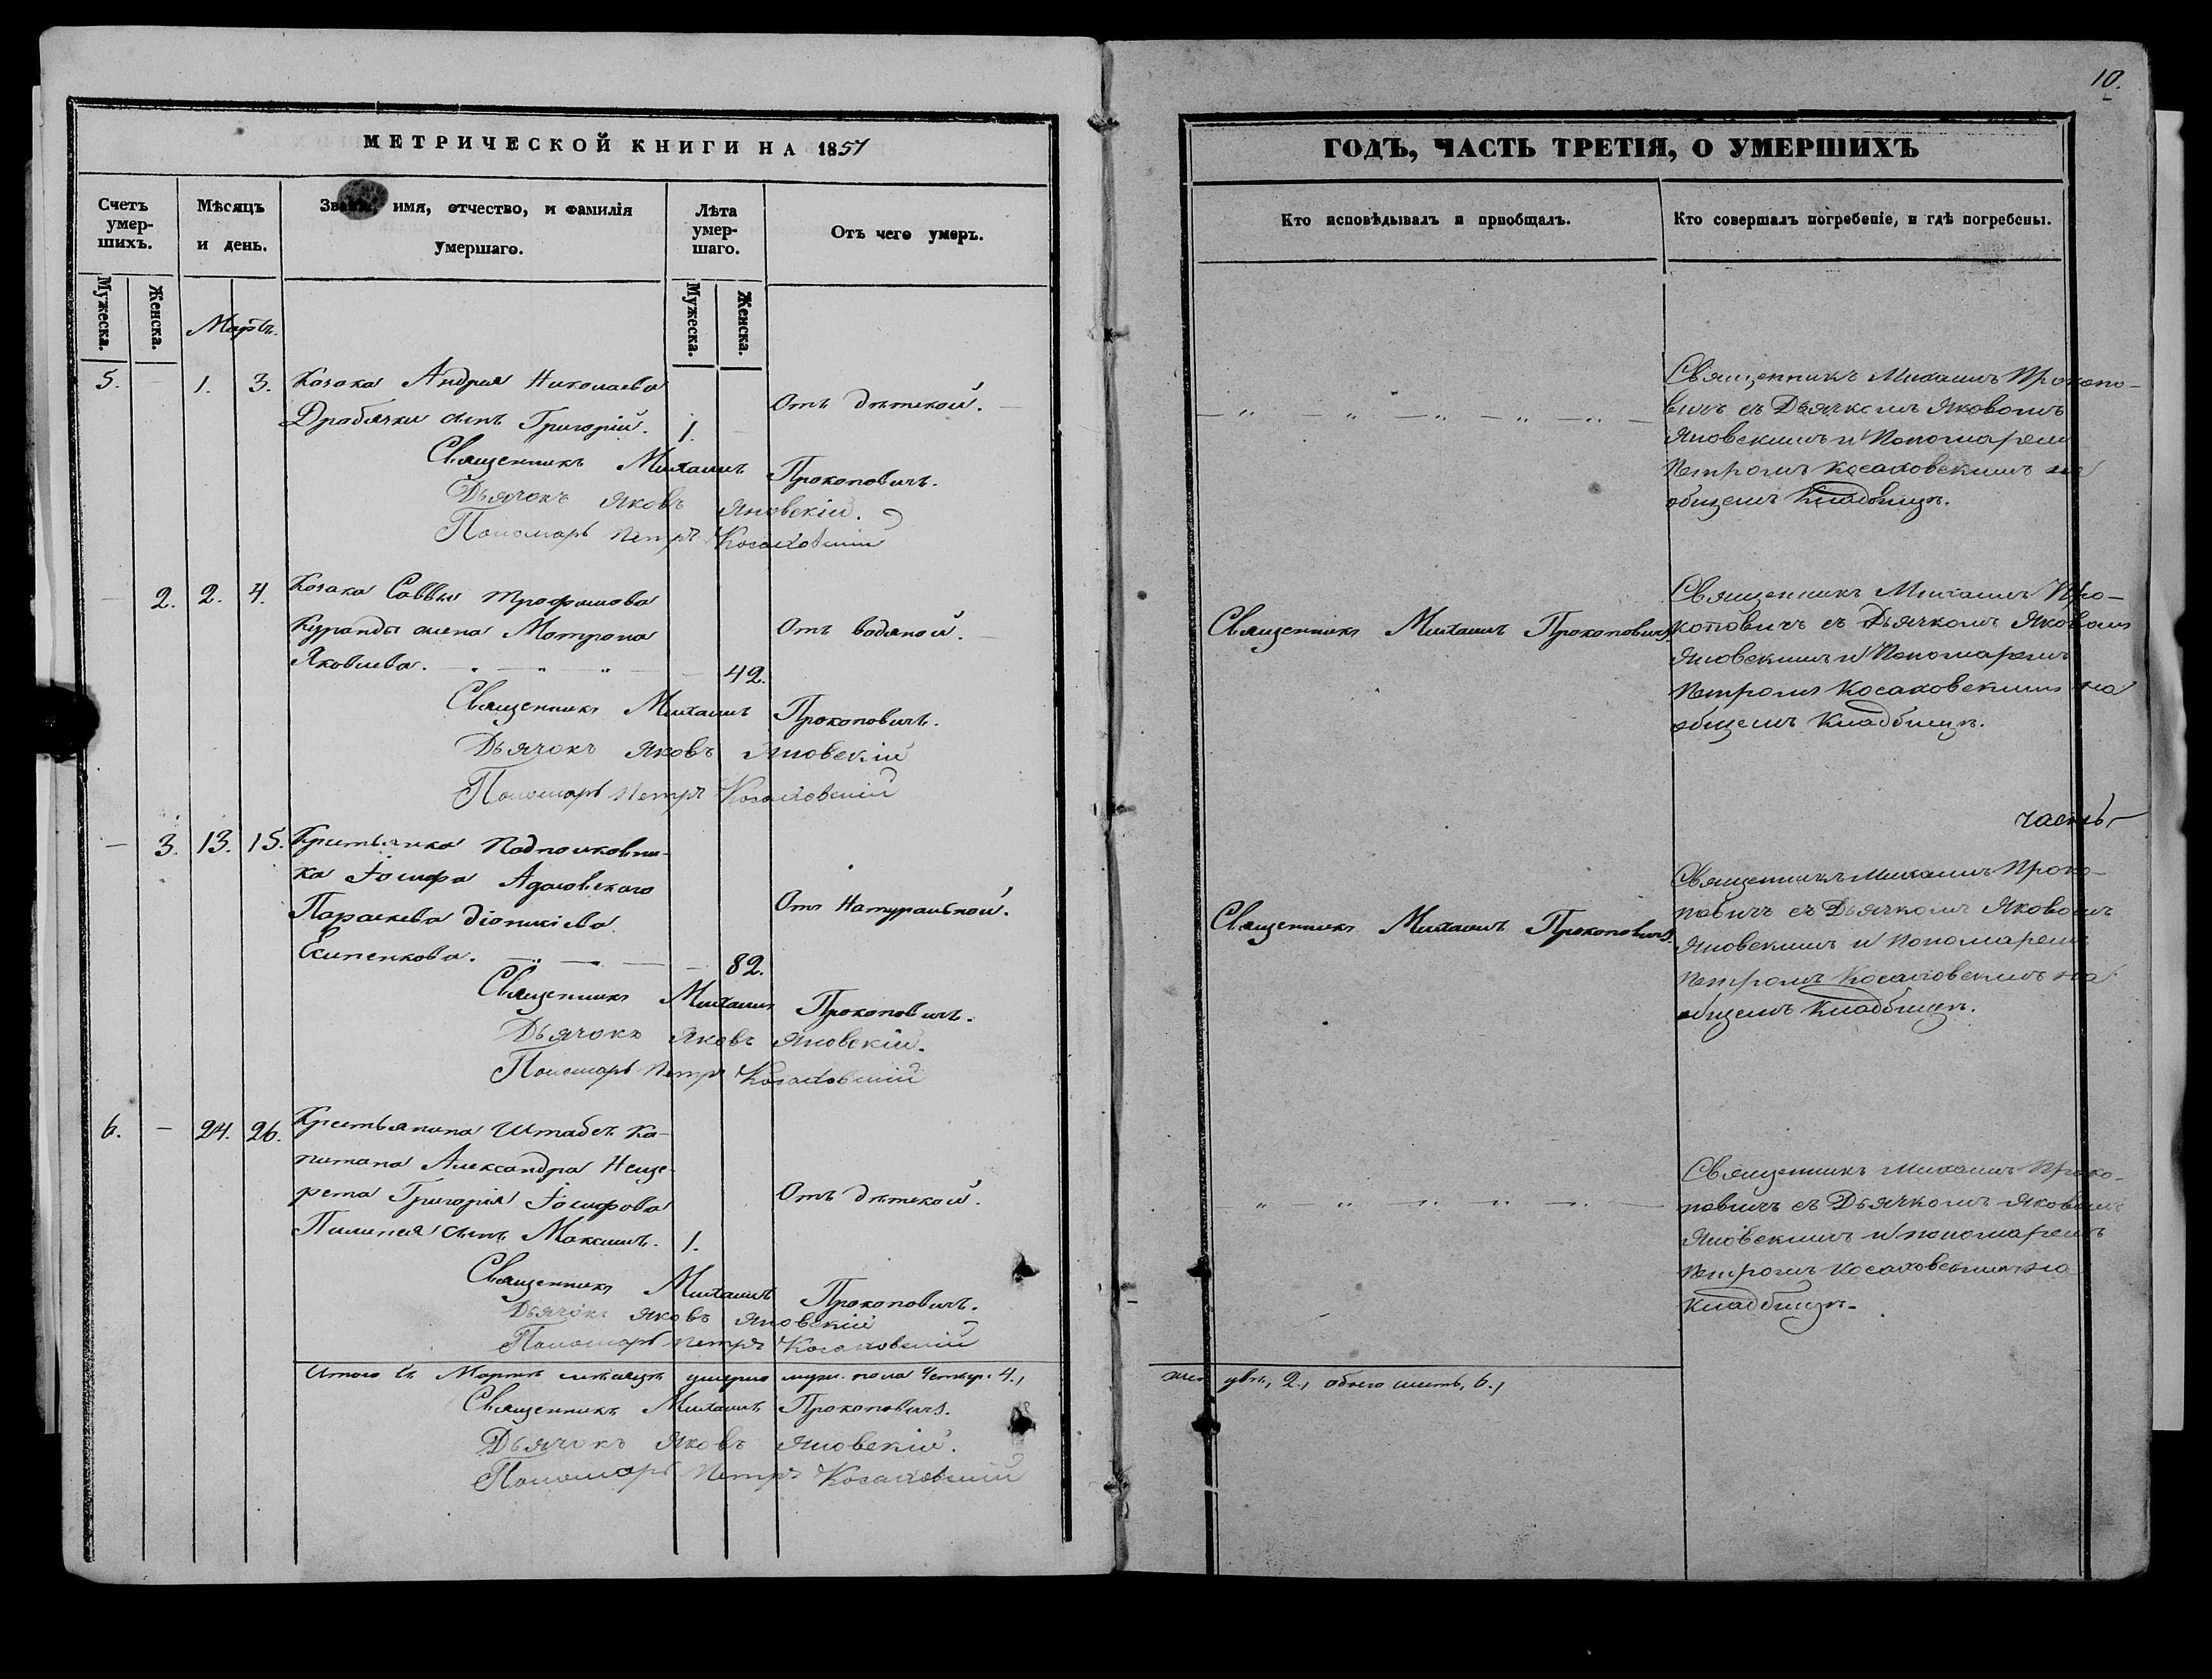 10.
МЕТРИЧЕСКОЙ КНИГИ НА 1851
Счетъ умер-
шихъ.
Мужеска.
Женска.
Мѣсяцъ
и день.
имя, отчество, и фамилія
умершаго.
Лѣта
умер-
шаго.
Мужеска.
Женска.
Отъ чего умеръ.
Мартъ.
5. 1. 3. Козака Андрея Николаева
Дробячки сынъ Григорій. 1. Отъ дѣтской.
Священникъ Михаилъ Прокоповичъ.
Дьячокъ Яковъ Яновскій.
Пономарь Петръ Косаковскій
2. 2. 4. Козака Саввы Трофимова
жена Матрона Отъ водяной.
Яковлева. 42.
Священникъ Михаилъ Прокоповичъ.
Дьячокъ Яковъ Яновскій
Пономарь Петръ Косаковскій
3. 13. 15. Крестьянка Подполковни-
ка Іосифа
Параскева Діонисіева Отъ Натуральной.
82.
Священникъ Михаилъ Прокоповичъ.
Дьячокъ Яковъ Яновскій.
Пономарь Петръ Косаковскій
6. 24. 26. Крестьянина Штабсъ Ка-
питана Александра Неще-
рета Григорія Іосифова Отъ дѣтской.
сынъ Максимъ. 1.
Священникъ Михаилъ Прокоповичъ.
Дьячокъ Яковъ Яновскій
Пономарь Петръ Косаковскій
Итого въ Мартѣ мѣсяцѣ умерло муж. пола Четыр. 4.,
Священникъ Михаилъ Прокоповичъ.
Дьячокъ Яковъ Яновскій.
Пономарь Петръ Косаковскій
ГОДЪ, ЧАСТЬ ТРЕТІЯ, О УМЕРШИХЪ
Кто исповѣдывалъ и пріобщалъ.
Кто совершалъ погребеніе, и гдѣ погребены.
Священникъ Михаилъ Прокопо-
вичъ съ Дьячкомъ Яковомъ
Яновскимъ и Пономаремъ
Петромъ Косаковскимъ на
общемъ Кладбищѣ.
Священникъ Михаилъ Прокоповичъ
Священникъ Михаилъ Про-
коповичъ съ Дьячкомъ Яковомъ
Яновскимъ и Пономаремъ
Петромъ Косаковскимъ на
общемъ Кладбищѣ.
часть
Священникъ Михаилъ Прокоповичъ.
Священникъ Михаилъ Проко-
повичъ съ Дьячкомъ Яковомъ
Яновскимъ и Пономаремъ
Петромъ Косаковскимъ на
общемъ Кладбищѣ.
Священникъ Михаилъ Проко-
повичъ съ Дьячкомъ Яковомъ
Яновскимъ и пономаремъ
Петромъ Косаковскимъ на
Кладбищѣ.
жен. двѣ, 2., обоего шесть, 6.,